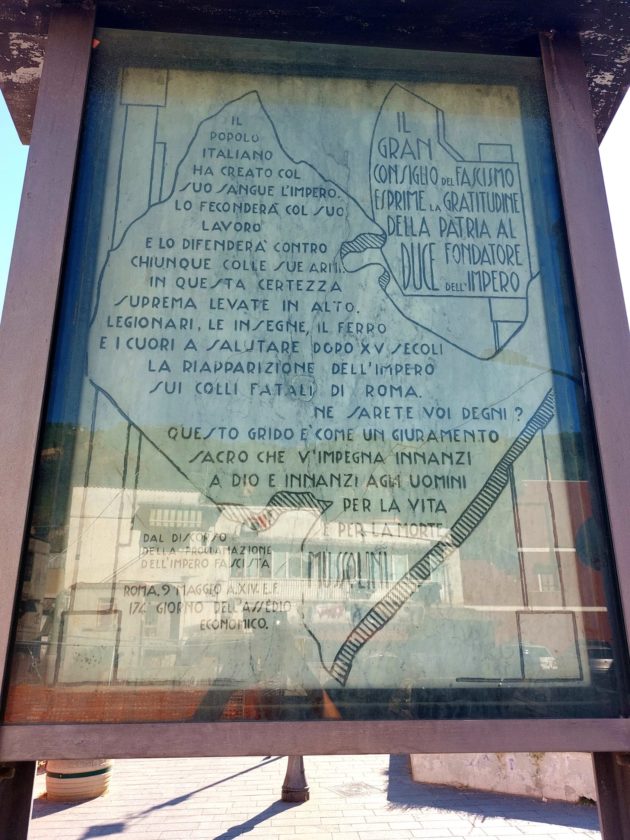 IL
POPOLO
ITALIANO
HA CREATO COL
SUO SANGUE L'IMPERO.
LO FECONDERA' COL SUO
LAVORO
E LO DIFENDERA' CONTRO
CHIUNQUE COLLE SUE ARMI.
IN QUESTA CERTEZZA
SUPREMA LEVATE IN ALTO.
LEGIONARI, LE INSEGNE, IL FERRO
E I CUORI A SALUTARE DOPO XV SECOLI
LA RIAPPARIZIONE DELL'IMPERO
SUI COLLI FATALI DI ROMA.
NE SARETE VOI DEGNI?
QUESTO GRIDO E' COME UN GIURAMENTO
SACRO CHE V'IMPEGNA INNANZI
A DIO E INNANZI AGLI UOMINI
PER LA VITA
E PER LA MORTE
MUSSOLINI
DAL DISCORSO
DELLA PROCLAMAZIONE
DELL'IMPERO FASCISTA
ROMA, 9 MAGGIO A.XIV. E.F.
174 GIORNO DELL'ASSEDIO
ECONOMICO.
IL
GRAN
CONSIGLIO DEL FASCISMO
ESPRIME LA GRATITUDINE
DELLA PATRIA AL
DUCE FONDATORE
DELL'IMPERO